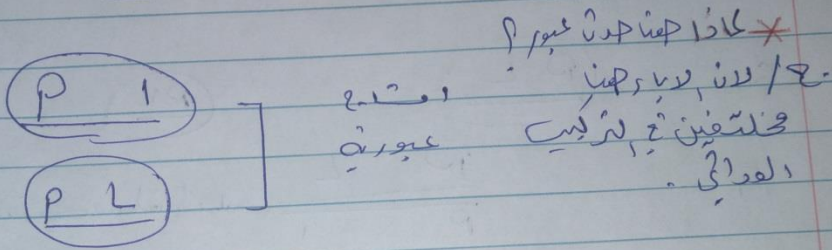 * لماذا هنا حدث عبور؟
ج/ لان الاباء هنا
مختلفين في التركيب
الوراثي.
امشاج
عبورية
P 1
P 2